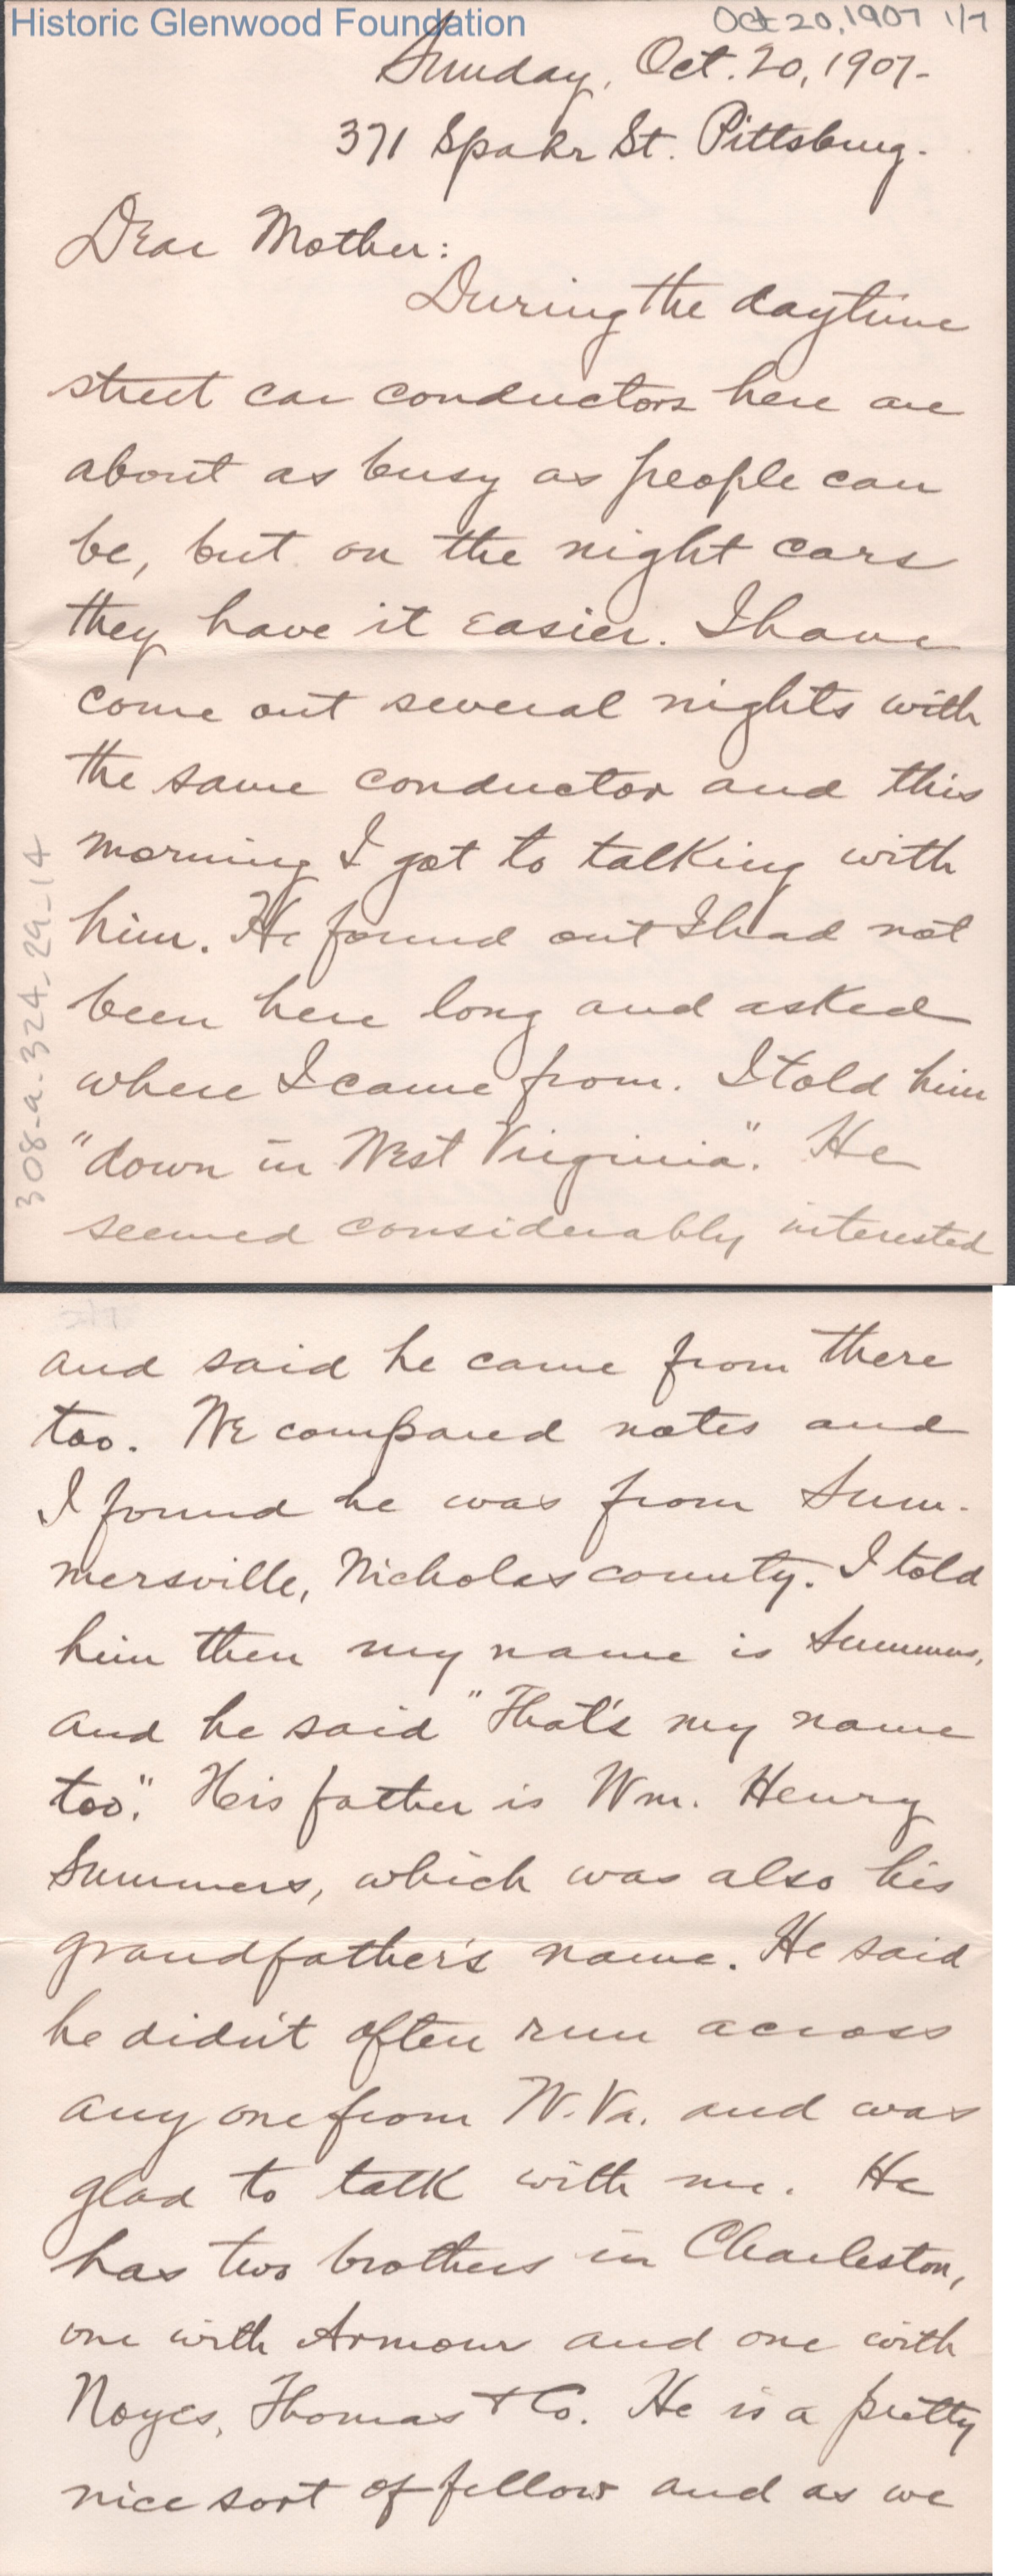 Historic Glenwood Foundation
Oct 20, 1907 1/7
Sunday, Oct. 20, 1907.
371 Spahr St. Pittsburg.
Dear Mother:
During the daytime
street car conductors here are
about as busy as people can
be, but on the night cars
they have it easier. I have
come out several nights with
the same conductor and this
morning I got to talking with
him. He found out I had not
been here long and asked
where I came from. I told him
"down in West Virginia". He
seemed considerably interested
308-a-324-29-14
2/7
and said he came from there
too. We compared notes and
I found he was from Sum-
mersville, Nicholas county. I told
him then my name is Summers,
and he said "That's my name
too". His father is Wm. Henry
Summers, which was also his
grandfather's name. He said
he didn't often run across
any one from W. Va. and was
glad to talk with me. He
has two brothers in Charleston,
one with Armour and one with
Noyes, Thomas & Co. He is a pretty
nice sort of fellow and as we